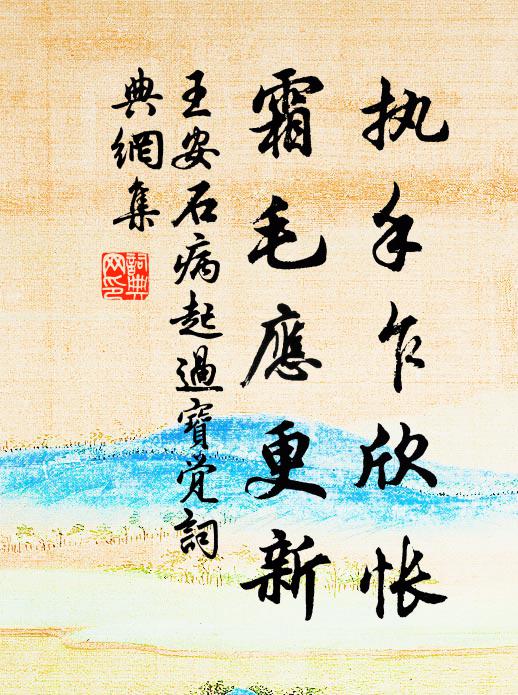 执手乍欣怅
霜毛應更新
王安石病起過寶觉詞
典網集
詞典网印